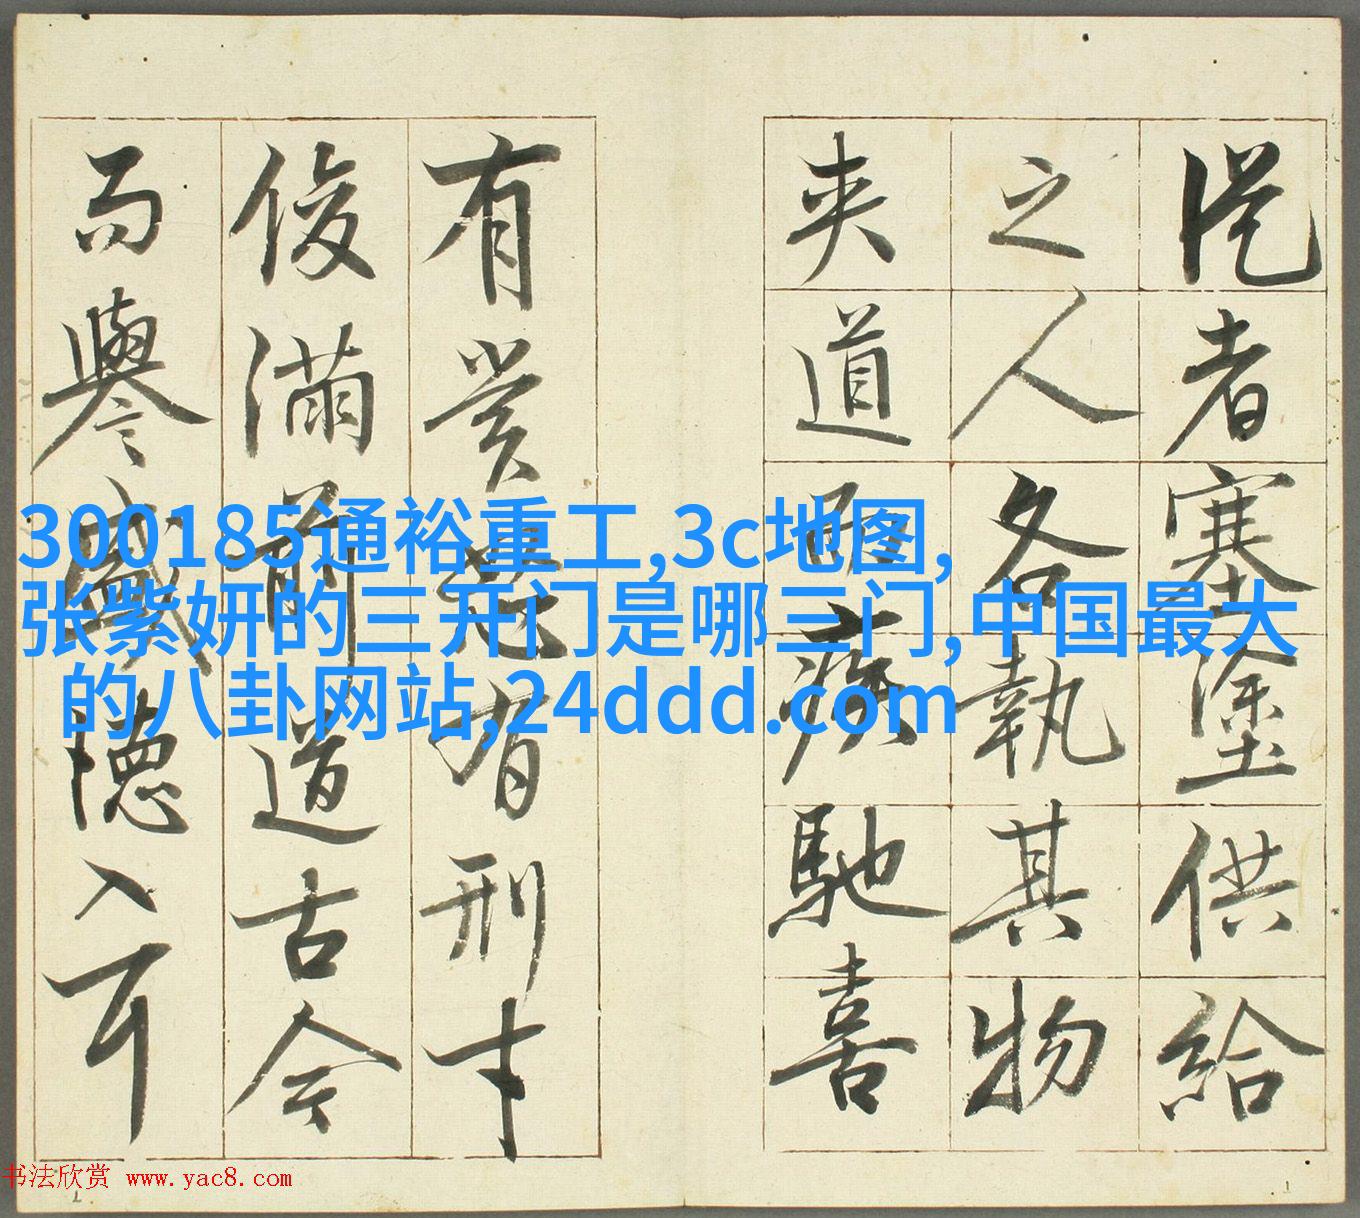 從者塞塗供給
之人各執其物
夾道而疾馳喜
有賞怒有刑才
俊滿前道古今
而譽盛德入耳
300185通裕重工,3c地图,
张紫妍的三开门是哪三门,中国最大
的八卦网站,24ddd.com
书法欣赏 www.yac8.com